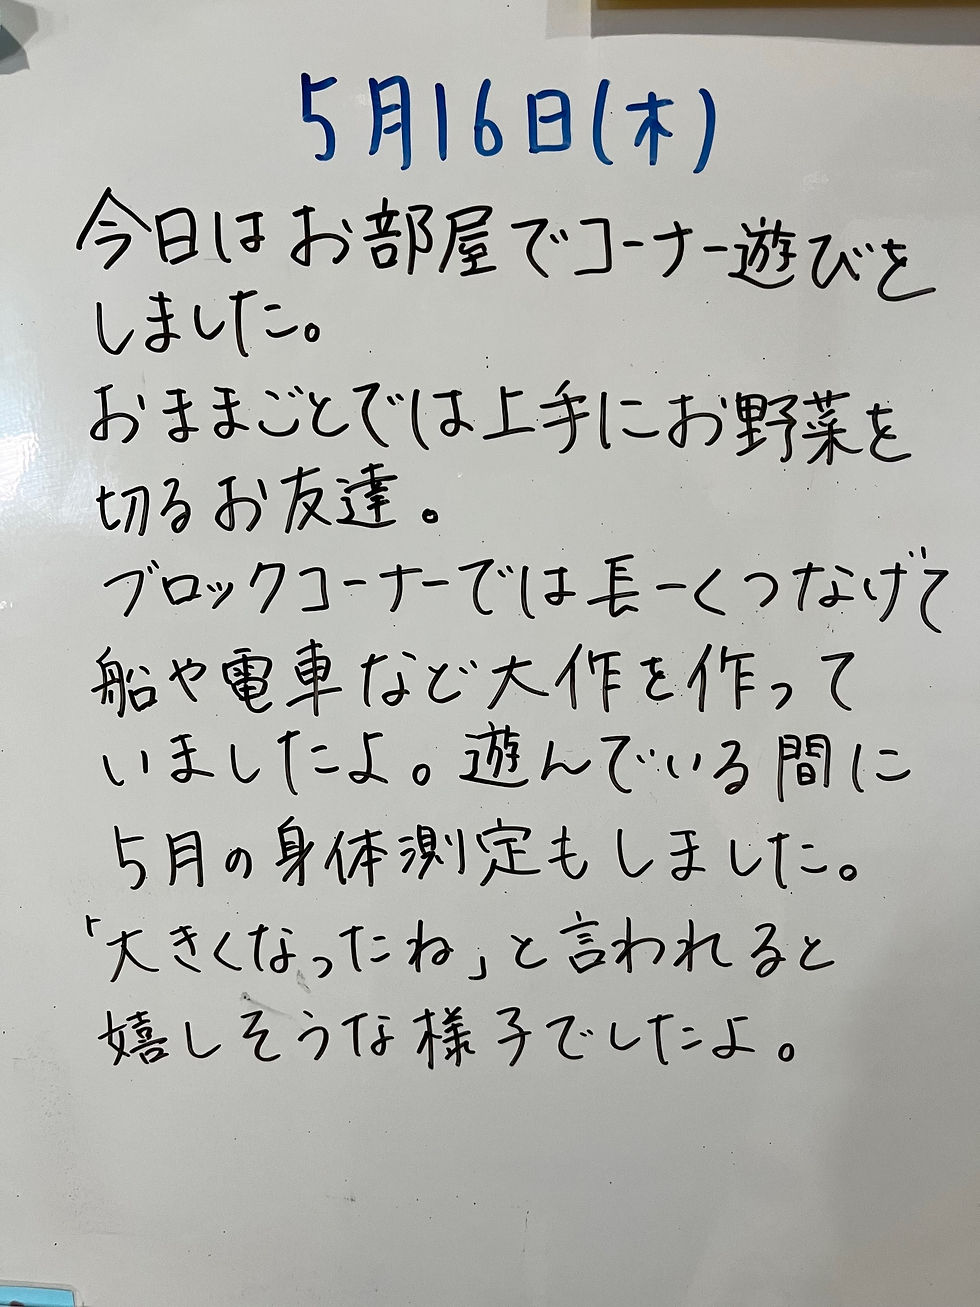 5月16日(木)
今日はお部屋でコーナー遊びを
しました。
おままごとでは上手にお野菜を
切るお友達。
ブロックコーナーでは長ーくつなげて
船や電車など大作を作って
いましたよ。遊んでいる間に
5月の身体測定もしました。
「大きくなったね」と言われると
嬉しそうな様子でしたよ。